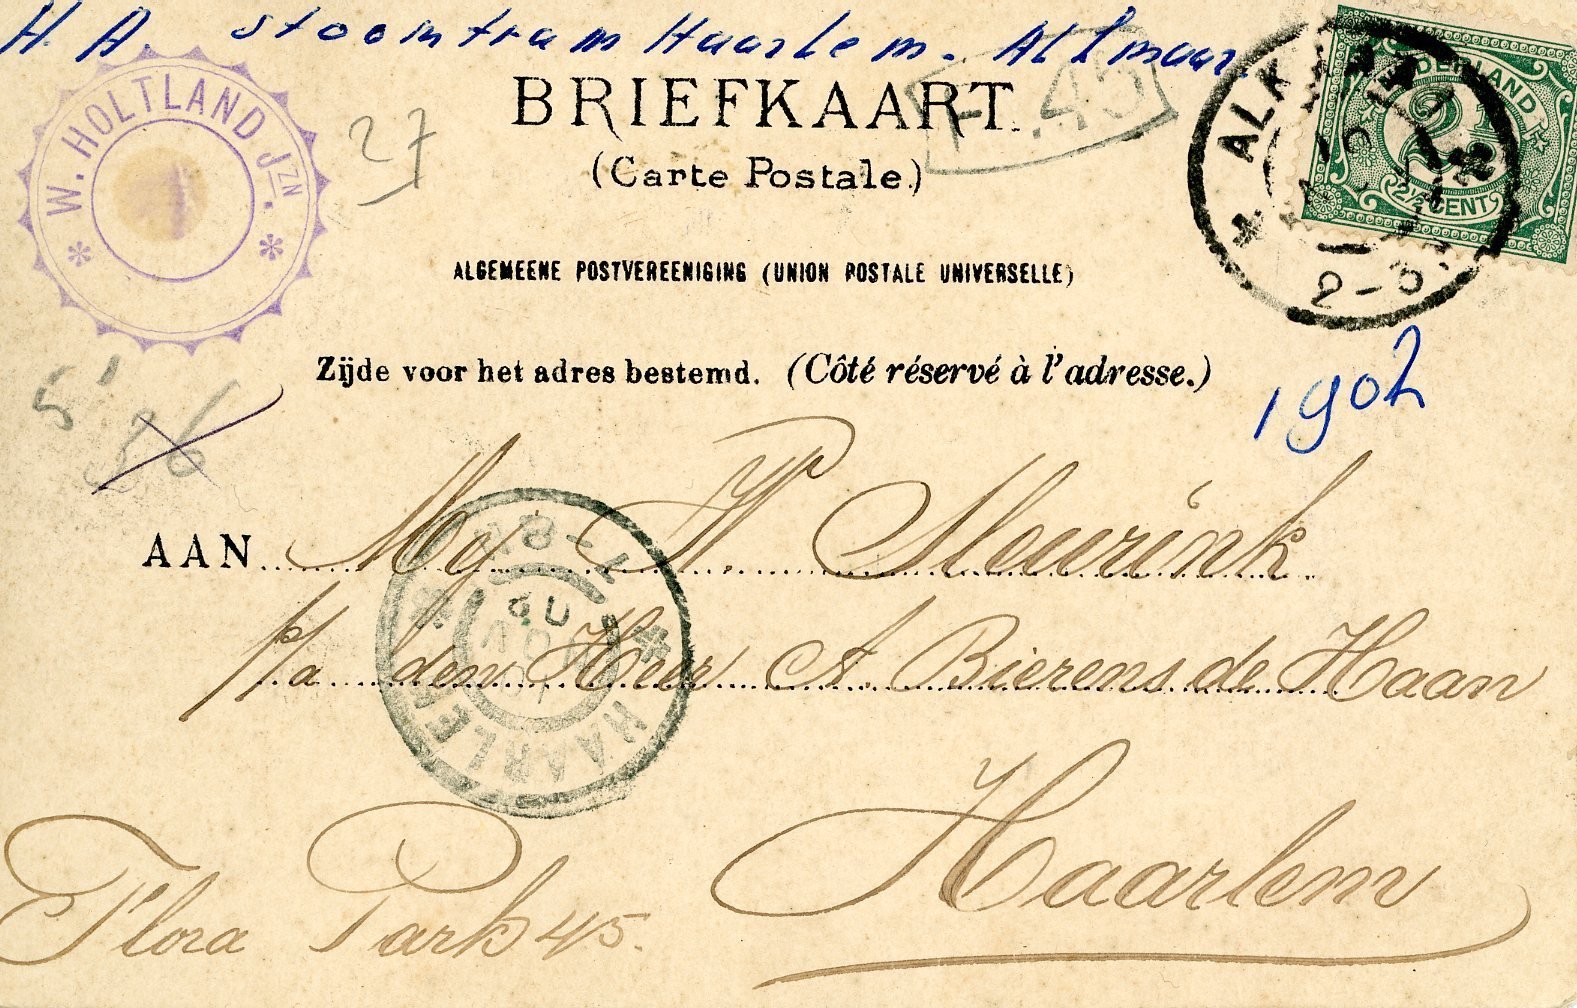 H. A. stoomtram Haarlem. Alkmaar.
BRIEFKAART.
(Carte Postale.)
ALGEMEENE POSTVEREENIGING (UNION POSTALE UNIVERSELLE)
Zijde voor het adres bestemd. (Côté réservé à l'adresse.)
W. HOLTLAND JZN.
27
.45
NEDERLAND
2½
2½ CENT
ALK
2-3
1902
5'
36
AAN Mej W. Meurink
p/a den Heer A. Bierens de Haan
Haarlem
Flora Park 45.
HAARLEM
7-8
NOV